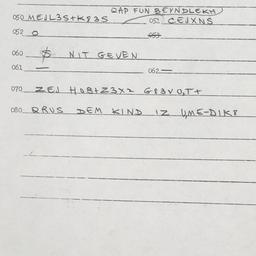 QAP FUN BEYNDLEKH
050 MEJL3S+K83S 051 CEJXNS
052 O 053
060 $ NIT GEVEN
061 — 062 —
070 ZEJ H08+Z3X2 G83VO,T+
080 QRUS DEM KIND IZ YME-DIK8